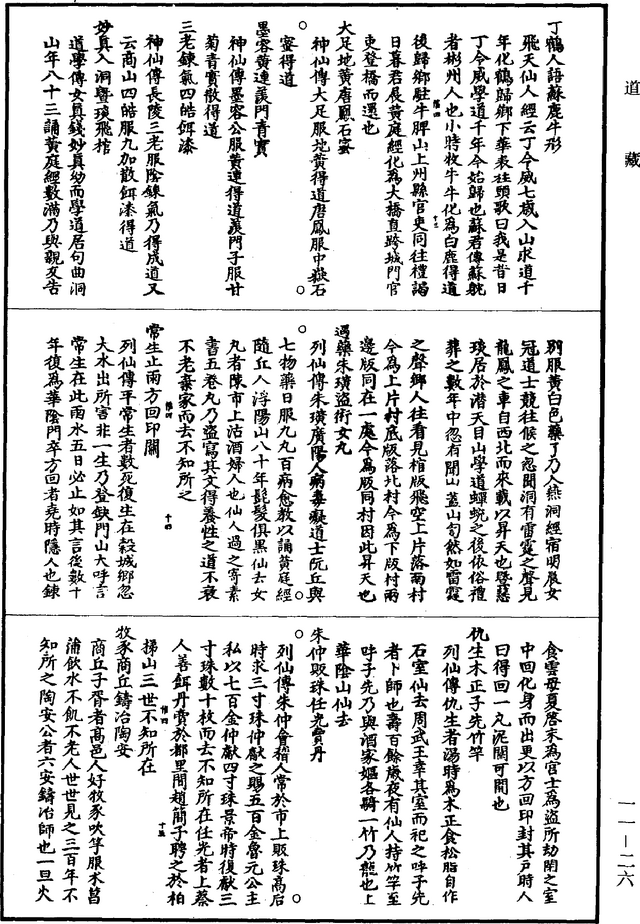 道藏
丁鶴人語蘇鹿牛形
飛天仙人經云丁令威七歲入山求道千
年化鶴歸鄉下華表柱頭歌曰我是昔日
丁令威學道千年今始歸也蘇君傳蘇躭
者彬州人也小時牧牛牛化為白鹿得道
後歸鄉駐牛脾山上州縣官吏同往禮謁
日暮君展黃庭經化為大橋直跨城門官
吏登橋而還也
大足地黃唐鳳石蜜
神仙傳大足服地黃得道唐鳳服中嶽石
蜜得道
墨容黃連羨門青實
神仙傳墨容公服黃連得道羨門子服甘
菊青實散得道
三老鍊氣四皓餌漆
神仙傳長陵三老服陰鍊氣乃得成道又
云商山四皓服九加散餌漆得道
妙真入洞暨琰飛棺
道學傳女真錢妙真幼而學道居句曲洞
山年八十三誦黃庭經數滿乃與親友告
別服黃白色藥了乃入燕洞經宿明晨女
冠道士競往候之忽聞洞有雷霆之聲見
龍鳳之車自西北而來載以昇天也暨慧
琰居於潛天目山學道蟬蛻之後依俗禮
葬之數年中忽有開山蓋山訇然如雷霆
之聲鄉人往看見棺版飛空上片落南村
今為上片村底版落北村今為下版村兩
邊版同在一處今為版同村因此昇天也
遇藥朱璜盜術女丸
列仙傳朱璜廣陽人病毒癡道士阮丘與
七物藥日服九丸百病愈教以誦黃庭經
隨丘入浮陽山八十年髭髮俱黑仙去女
丸者陳市上沽酒婦人也仙人過之寄素
書五卷丸乃盜寫其文得養性之道不衰
不老棄家而去不知所之
常生止雨方回印關
列仙傳平常生者數死復生在穀城鄉忽
大水出所害非一生乃登缺門山大呼言
常生在此雨水五日必止如其言後數十
年復為華陰門卒方回者堯時隱人也鍊
食雲母夏啓末為宮士為盜所劫閉之室
中回化身而出更以方回印封其戶時人
曰得回一丸泥關可閉也
仇生木正子先竹竿
列仙傳仇生者湯時為木正食松脂自作
石室仙去周武王幸其室而祀之呼子先
者卜師也壽百餘歲夜有仙人持竹竿至
呼子先乃與酒家嫗各騎一竹乃龍也上
華陰山仙去
朱仲販珠任光賣丹
列仙傳朱仲會稽人常於市上販珠高后
時求三寸珠仲獻之賜五百金魯元公主
私以七百金仲獻四寸珠景帝時復獻三
寸珠數十枚而去不知所在任光者上蔡
人善餌丹賣於都里間趙簡子聘之於柏
梯山三世不知所在
牧豕商丘鑄冶陶安
商丘子胥者高邑人好牧豕吹竽服朮菖
蒲飲水不飢不老人世世見之三百年不
知所之陶安公者六安鑄冶師也一旦火
一一—二六